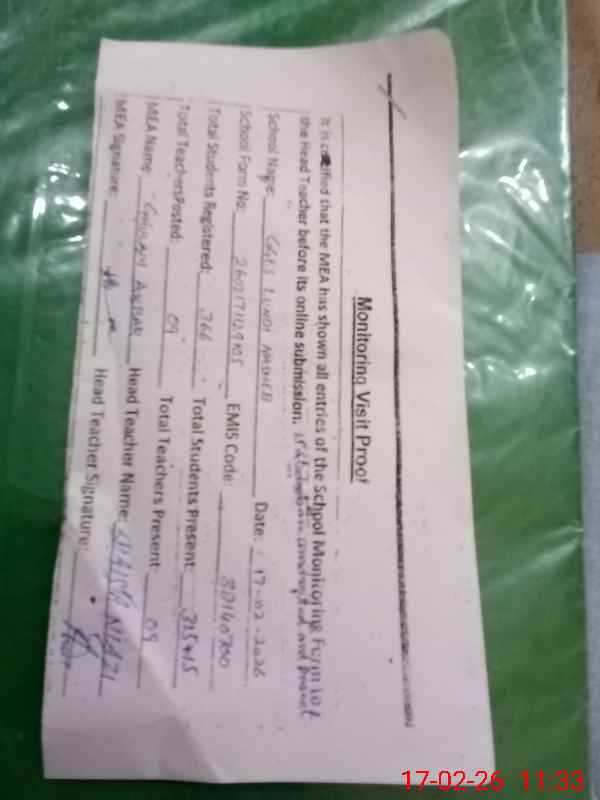 Monitoring Visit Proof
It is certified that the MEA has shown all entries of the School Monitoring Form to
the Head Teacher before its online submission. 15 students are and present
School Name: GGES LUNDI Date: 17-02-2026
School Form No: 260217112905 EMIS Code:
Total Students Registered: 366 Total Students Present: 315+15
Total Teachers Posted: 09 Total Teachers Present: 09
MEA Name: GHULAM AKBAR Head Teacher Name: NIAZI
MEA Signature: Head Teacher Signature:
17-02-26 11:33